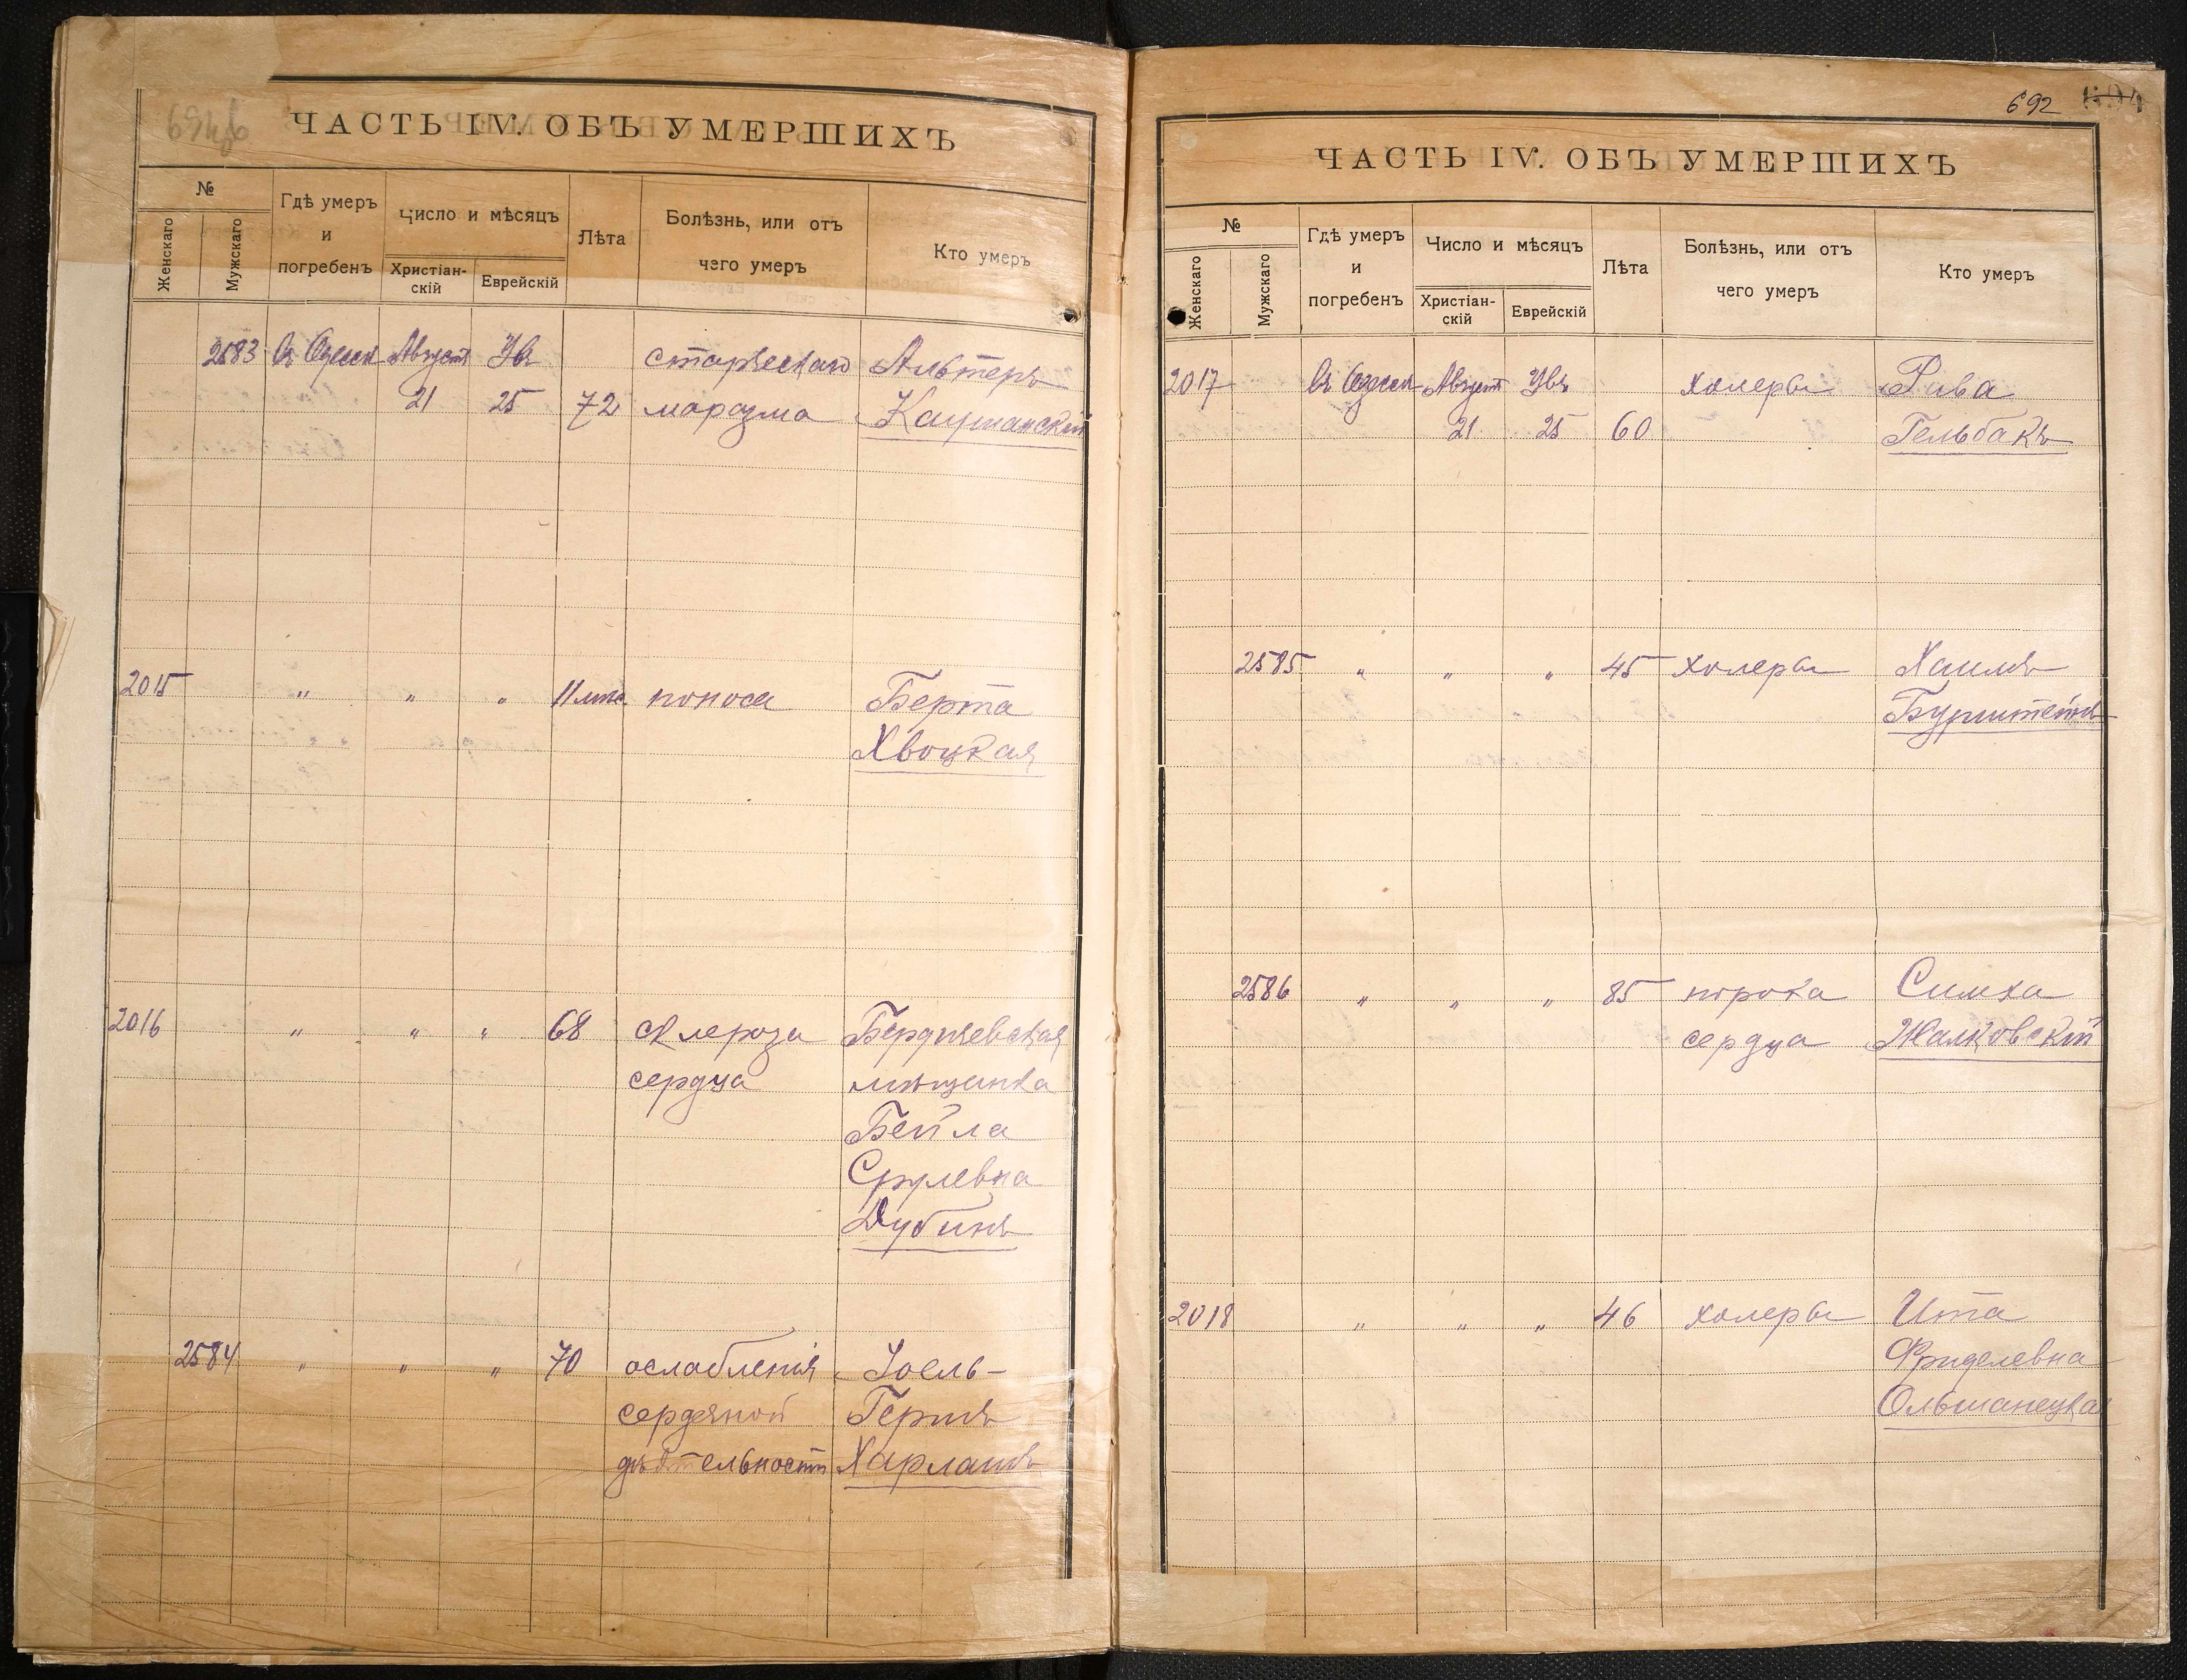 ЧАСТЬ IV. ОБЪ УМЕРШИХЪ
№
Женскаго
Мужскаго
Гдѣ умеръ
и
погребенъ
Число и мѣсяцъ
Христіан-
скій
Еврейскій
Лѣта
Болѣзнь, или отъ
чего умеръ
Кто умеръ
2583 въ Одессѣ Августъ Увъ старческаго Альтеръ
21 25 72 маразма Кацманскій
2015 " " " 11 мѣс. поноса Берта
Хвоцкая
2016 " " " 68 склероза Бердичевская
сердца мѣщанка
Бейла
Срулевна
Дубинъ
2584 " " " 70 ослабленія Іоель-
сердечной Гершъ
дѣятельности Харлашъ
692
ЧАСТЬ IV. ОБЪ УМЕРШИХЪ
№
Женскаго
Мужскаго
Гдѣ умеръ
и
погребенъ
Число и мѣсяцъ
Христіан-
скій
Еврейскій
Лѣта
Болѣзнь, или отъ
чего умеръ
Кто умеръ
2017 въ Одессѣ Августъ Увъ холеры Рива
21 25 60 Гельбакъ
2585 " " " 45 холеры Хаимъ
Бурштейнъ
2586 " " " 85 порока Симха
сердца Жалковскій
2018 " " " 46 холеры Ита
Фриделевна
Ольшанецкая